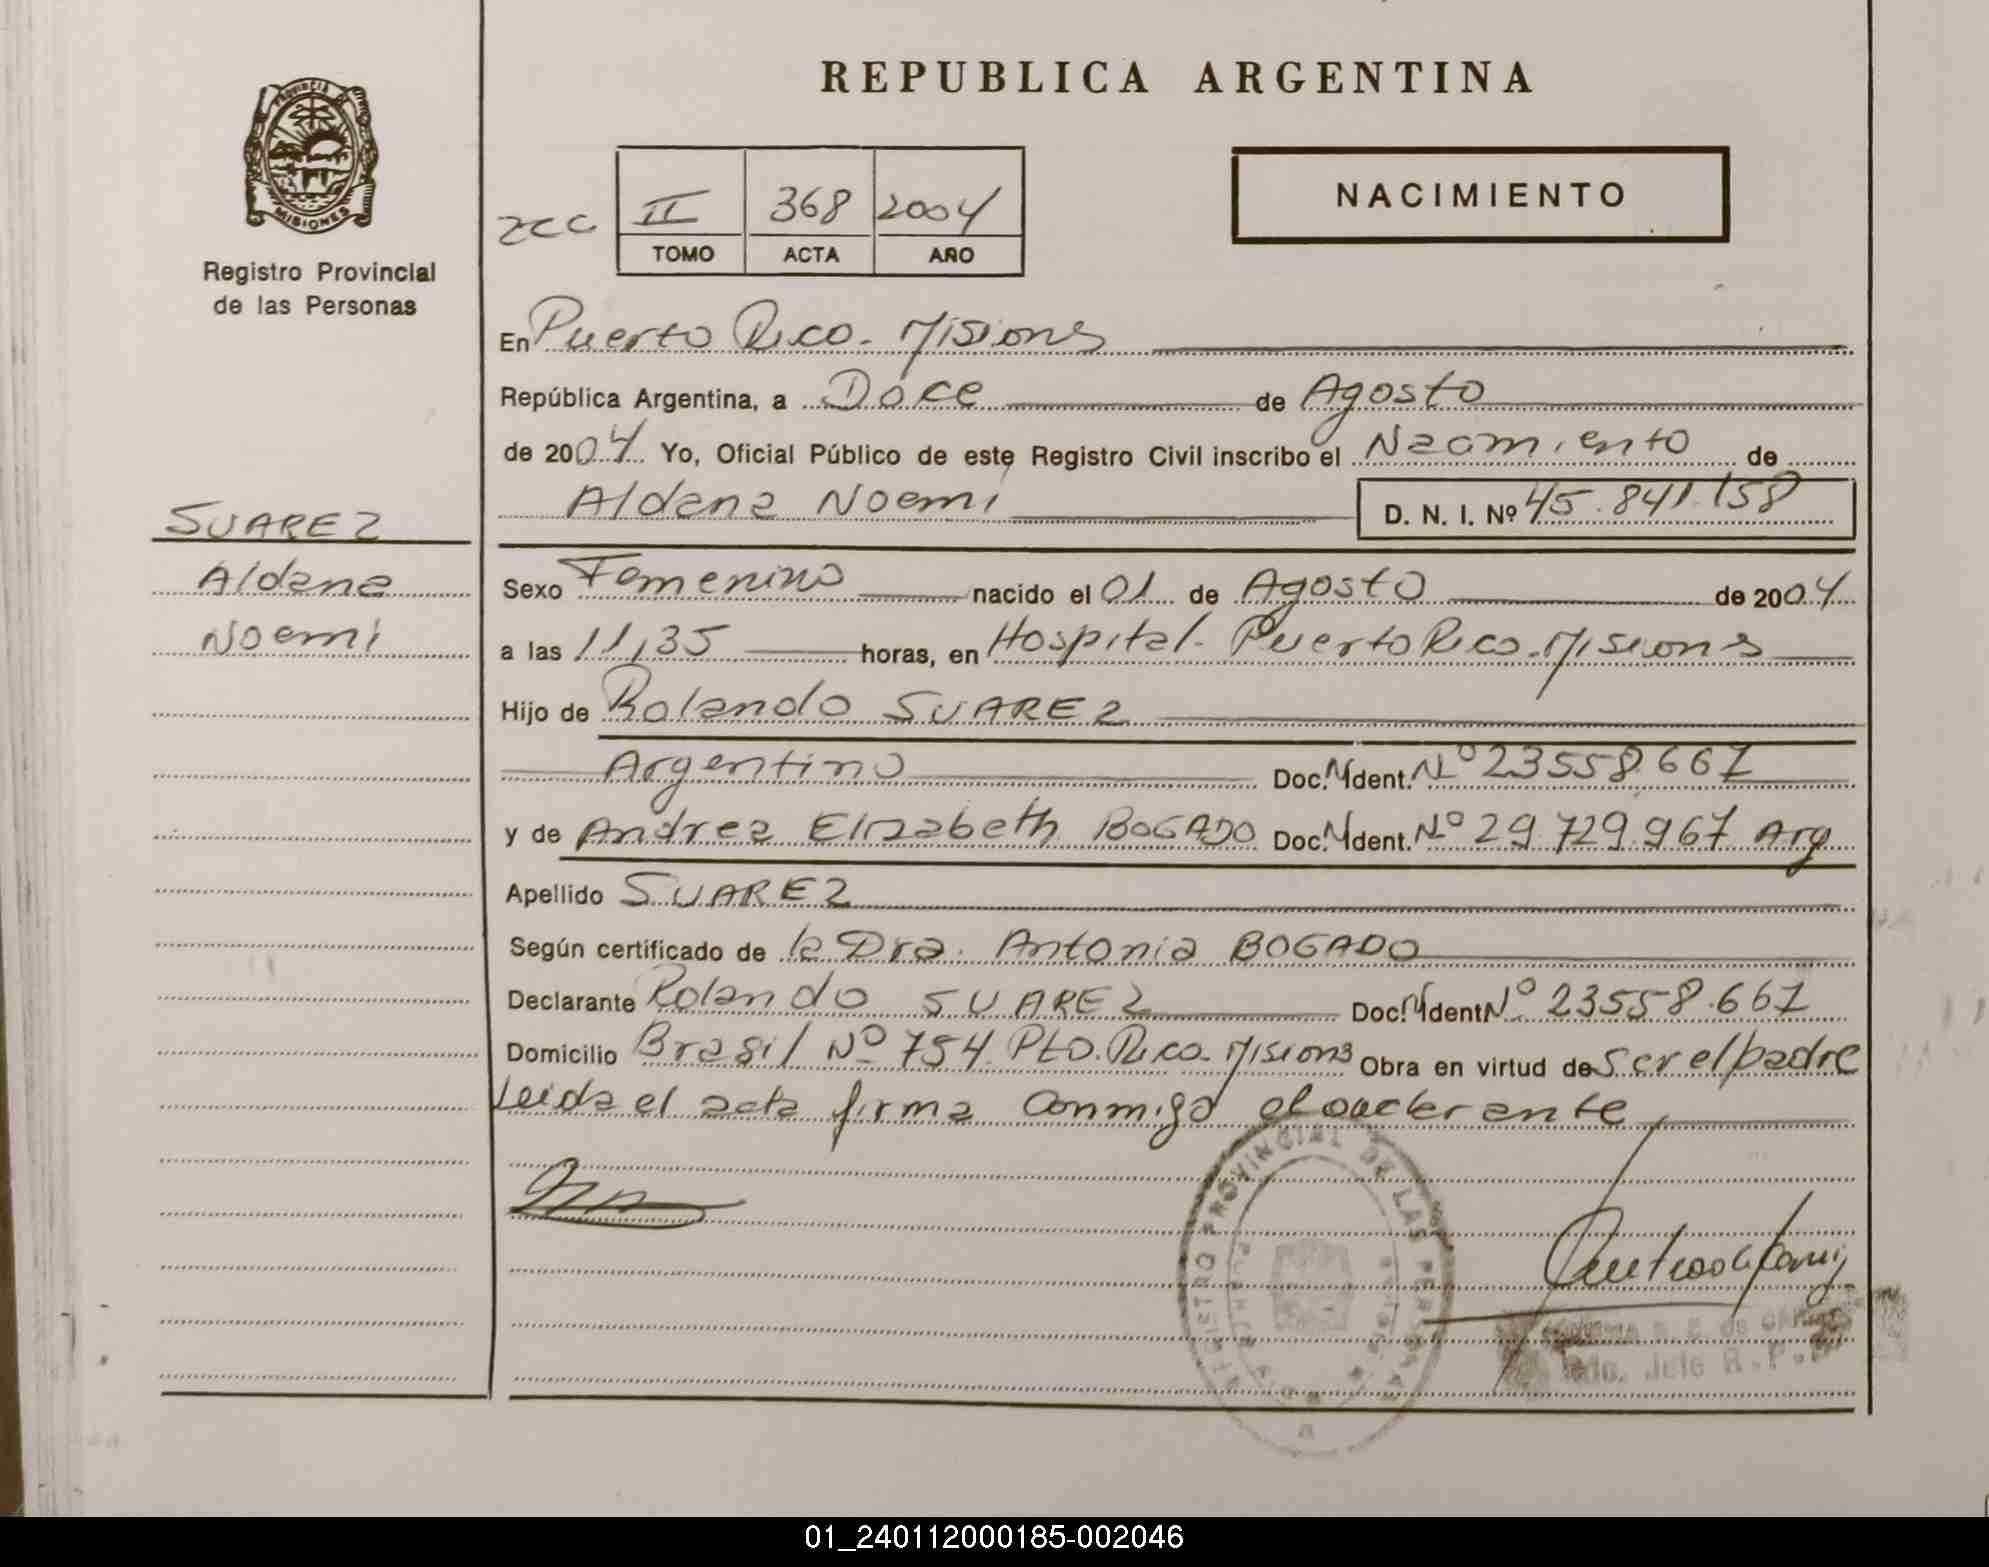 REPUBLICA ARGENTINA
PROVINCIA DE
MISIONES
Registro Provincial
de las Personas
NACIMIENTO
II 368 2004
TOMO ACTA AÑO
En Puerto Rico - Misiones
República Argentina, a Doce de Agosto
de 2004 Yo, Oficial Público de este Registro Civil inscribo el Nacimiento de
Aldana Noemi D. N. I. Nº 45.841.158
SUAREZ
Aldana
Noemi
Sexo Femenino nacido el 01 de Agosto de 2004
a las 11,35 horas, en Hospital - Puerto Rico - Misiones
Hijo de Rolando SUAREZ
Argentino Doc. Ident. Nº 23558.667
y de Andrea Elizabeth BOGADO Doc. Ident. Nº 29.729.967 Arg
Apellido SUAREZ
Según certificado de la Dra. Antonia BOGADO
Declarante Rolando SUAREZ Doc. Ident Nº 23558.667
Domicilio Brasil Nº 754. Pto. Rico - Misiones Obra en virtud de Ser el padre
Leida el acta firma conmigo el declarante
REGISTRO PROVINCIAL DE LAS PERSONAS
Jefe R. P.
01_240112000185-002046